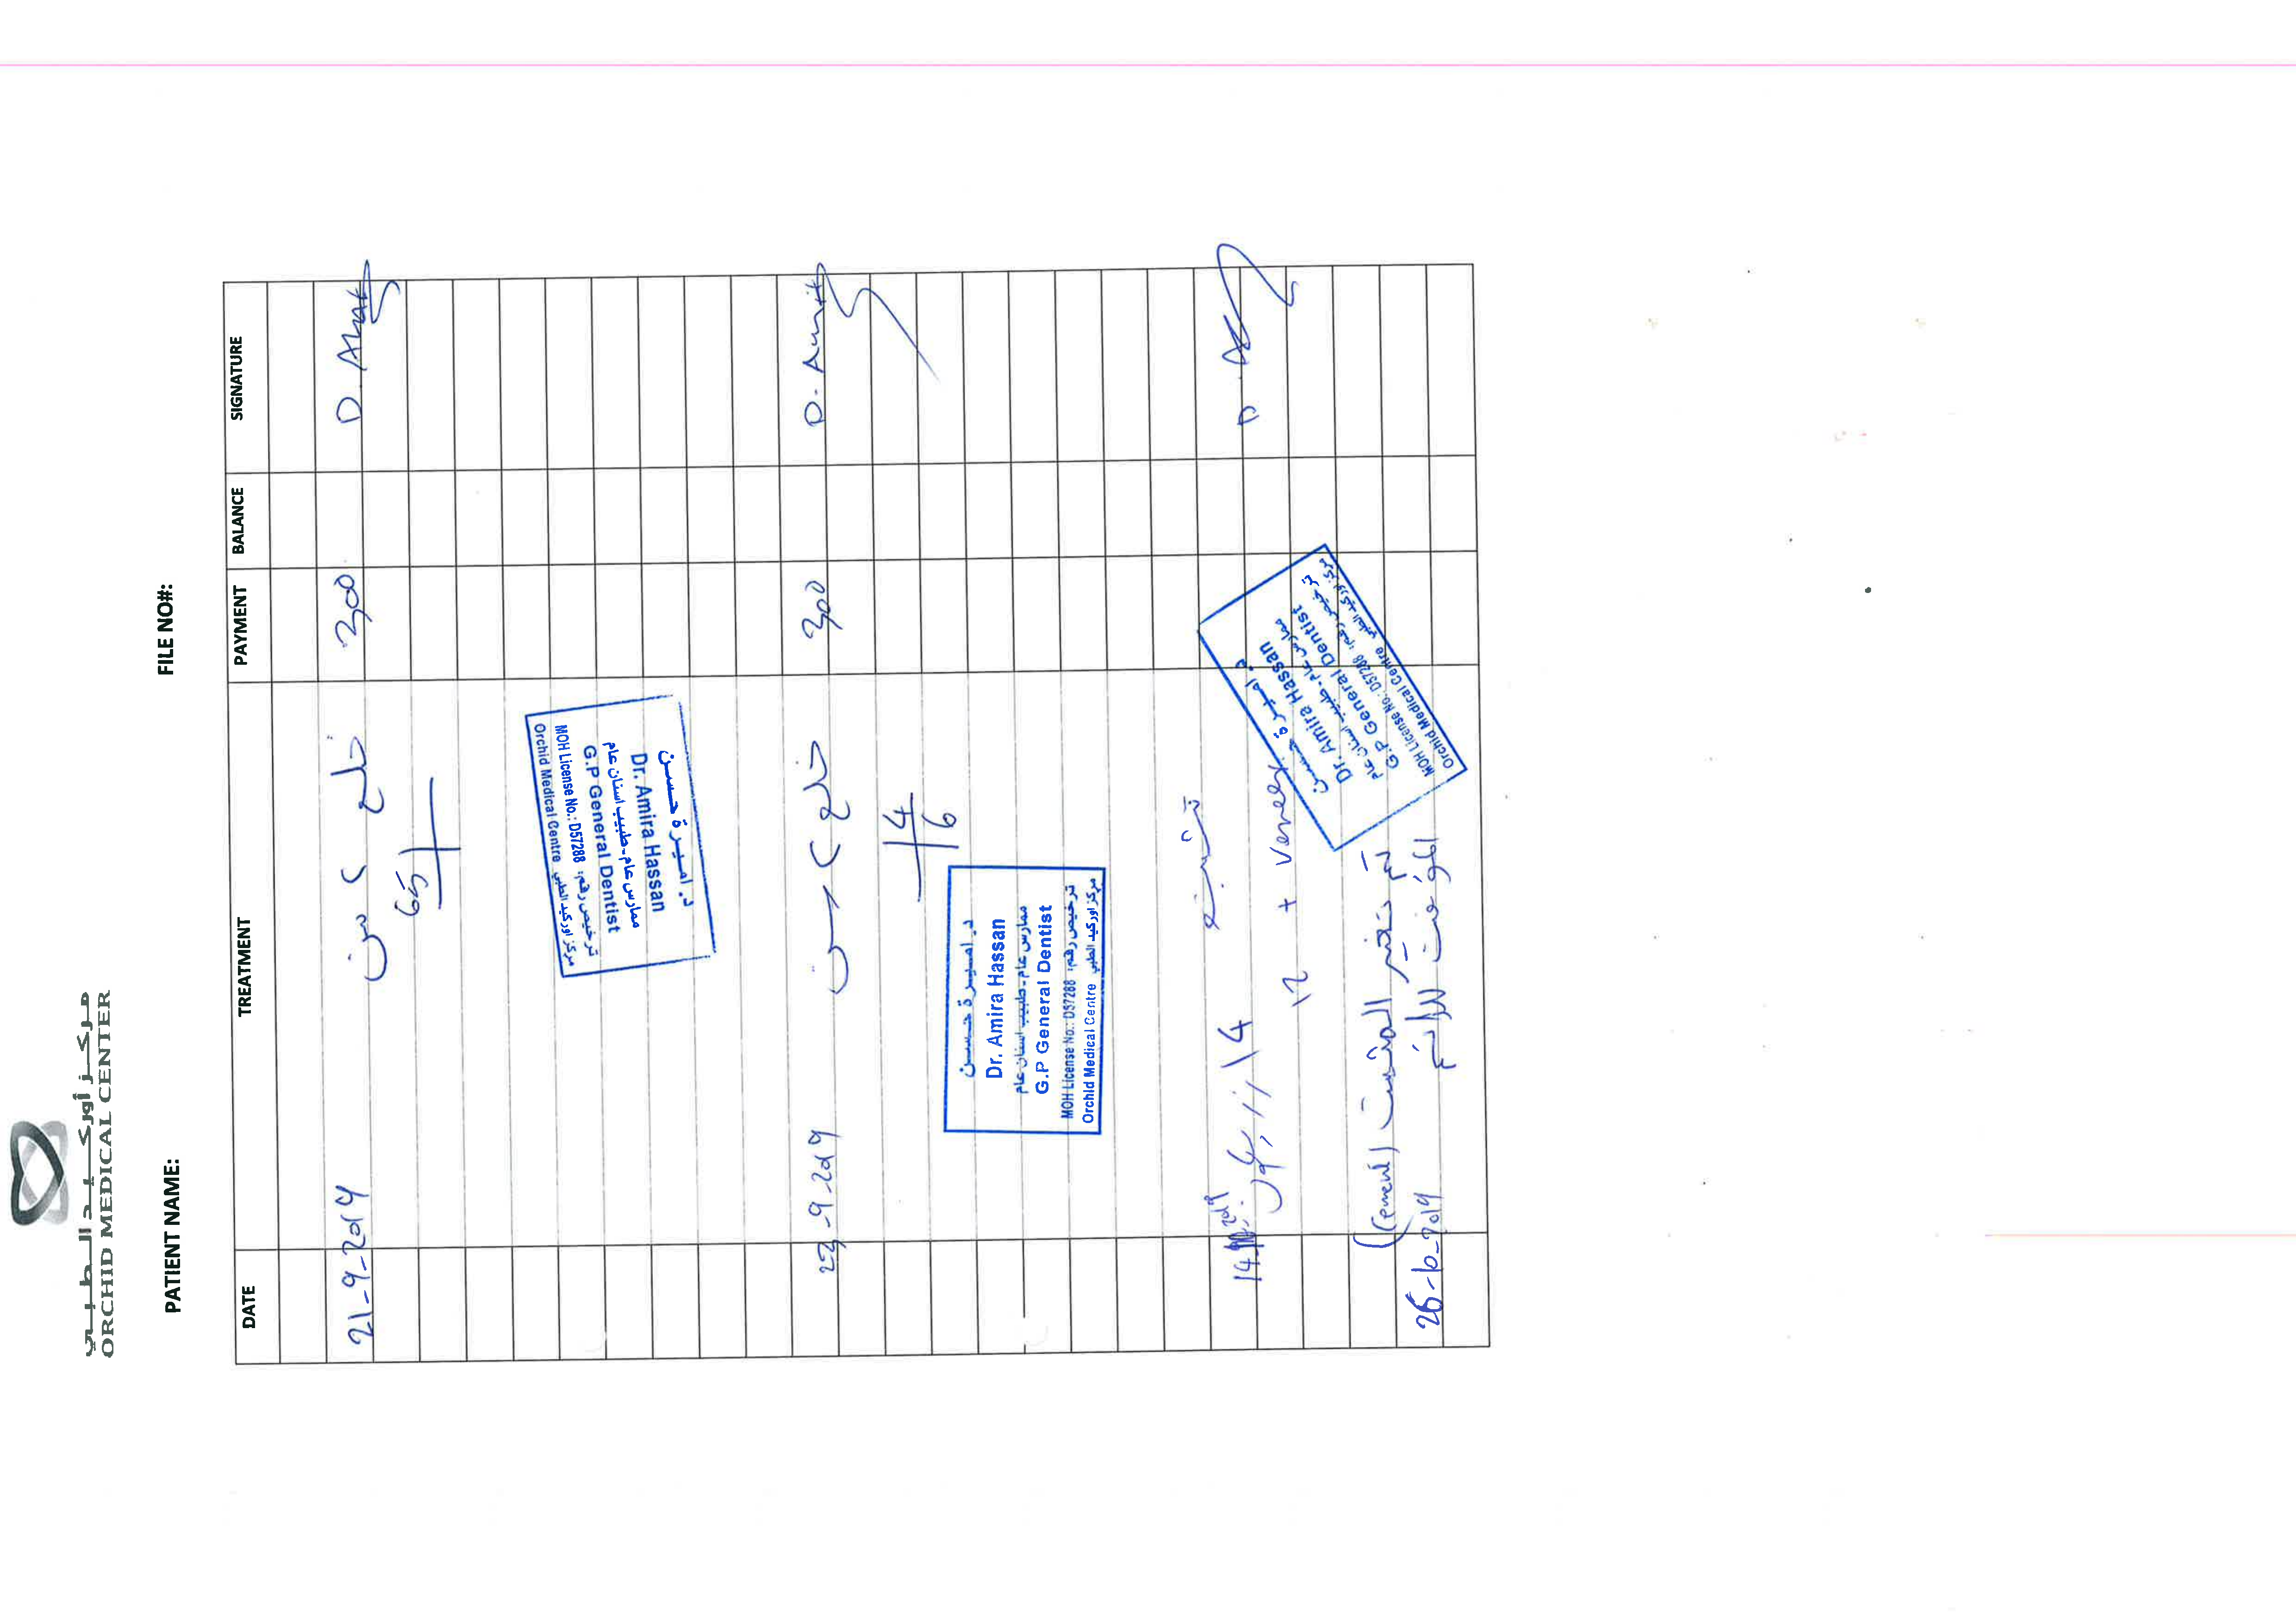 مركز أوركيد الطبي
ORCHID MEDICAL CENTER
PATIENT NAME:
FILE NO#:
DATE TREATMENT PAYMENT BALANCE SIGNATURE
21-9-2019 خلع ٢ سن 300 D. Amira
65
د. اميرة حسن
Dr. Amira Hassan
ممارس عام - طبيب اسنان عام
G.P General Dentist
ترخيص رقم: MOH License No.: D57288
Orchid Medical Centre مركز اوركيد الطبي
23-9-2019 خلع ٢ سن 300 D. Amira
4
6
د. اميرة حسن
Dr. Amira Hassan
ممارس عام - طبيب اسنان عام
G.P General Dentist
MOH License No.: D57288 ترخيص رقم:
Orchid Medical Centre مركز اوركيد الطبي
14 2019 زيركون 14 D.
12 + Veneer
د. اميرة حسن
Dr. Amira Hassan
ممارس عام - طبيب اسنان عام
G.P General Dentist
MOH License No.: D57288 ترخيص رقم:
Orchid Medical Centre مركز اوركيد الطبي
تم تغيير المثبت (Cement)
26-10-2019 المؤقت للدائم